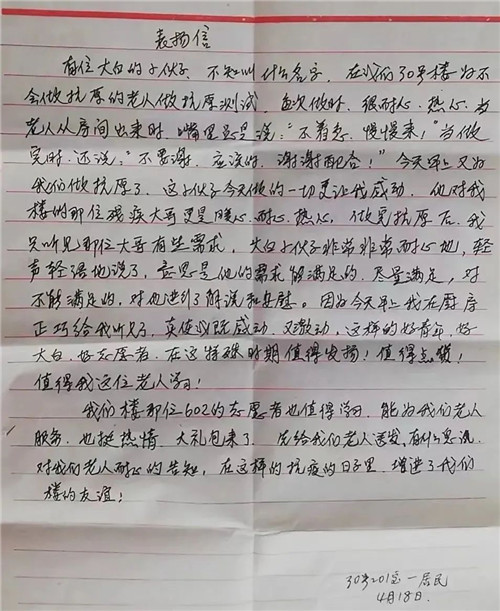 表扬信
有位大白的小伙子,不知叫什么名字,在我们30号楼为不
会做抗原的老人做抗原测试,每次做时,很耐心、热心,当
老人从房间出来时,嘴里总是说:“不着急,慢慢来!”当做
完时,还说:“不要谢,应该的,谢谢配合!”今天早上又为
我们做抗原了,这小伙子今天做的一切更让我感动,他对我
楼的那位残疾大哥更是暖心、耐心、热心,做完抗原后,我
只听见那位大哥有些需求,大白小伙子非常非常耐心地,轻
声轻语地说了,意思是他们的需求能满足的,尽量满足,对
不能满足的,对他进行了解说和安慰。因为今天早上我在厨房
正巧给我听见了,真使我既感动,又激动,这样的好青年,好
大白,好志愿者,在这特殊时期值得发扬!值得点赞!
值得我这位老人学习!
我们楼那位602的志愿者也值得学习,能为我们老人
服务,也挺热情,大礼包来了,先给我们老人送发,有什么说
对我们老人耐心的告知,在这样的抗疫的日子里,增进了我们
楼的友谊!
30号201室一居民
4月18日.